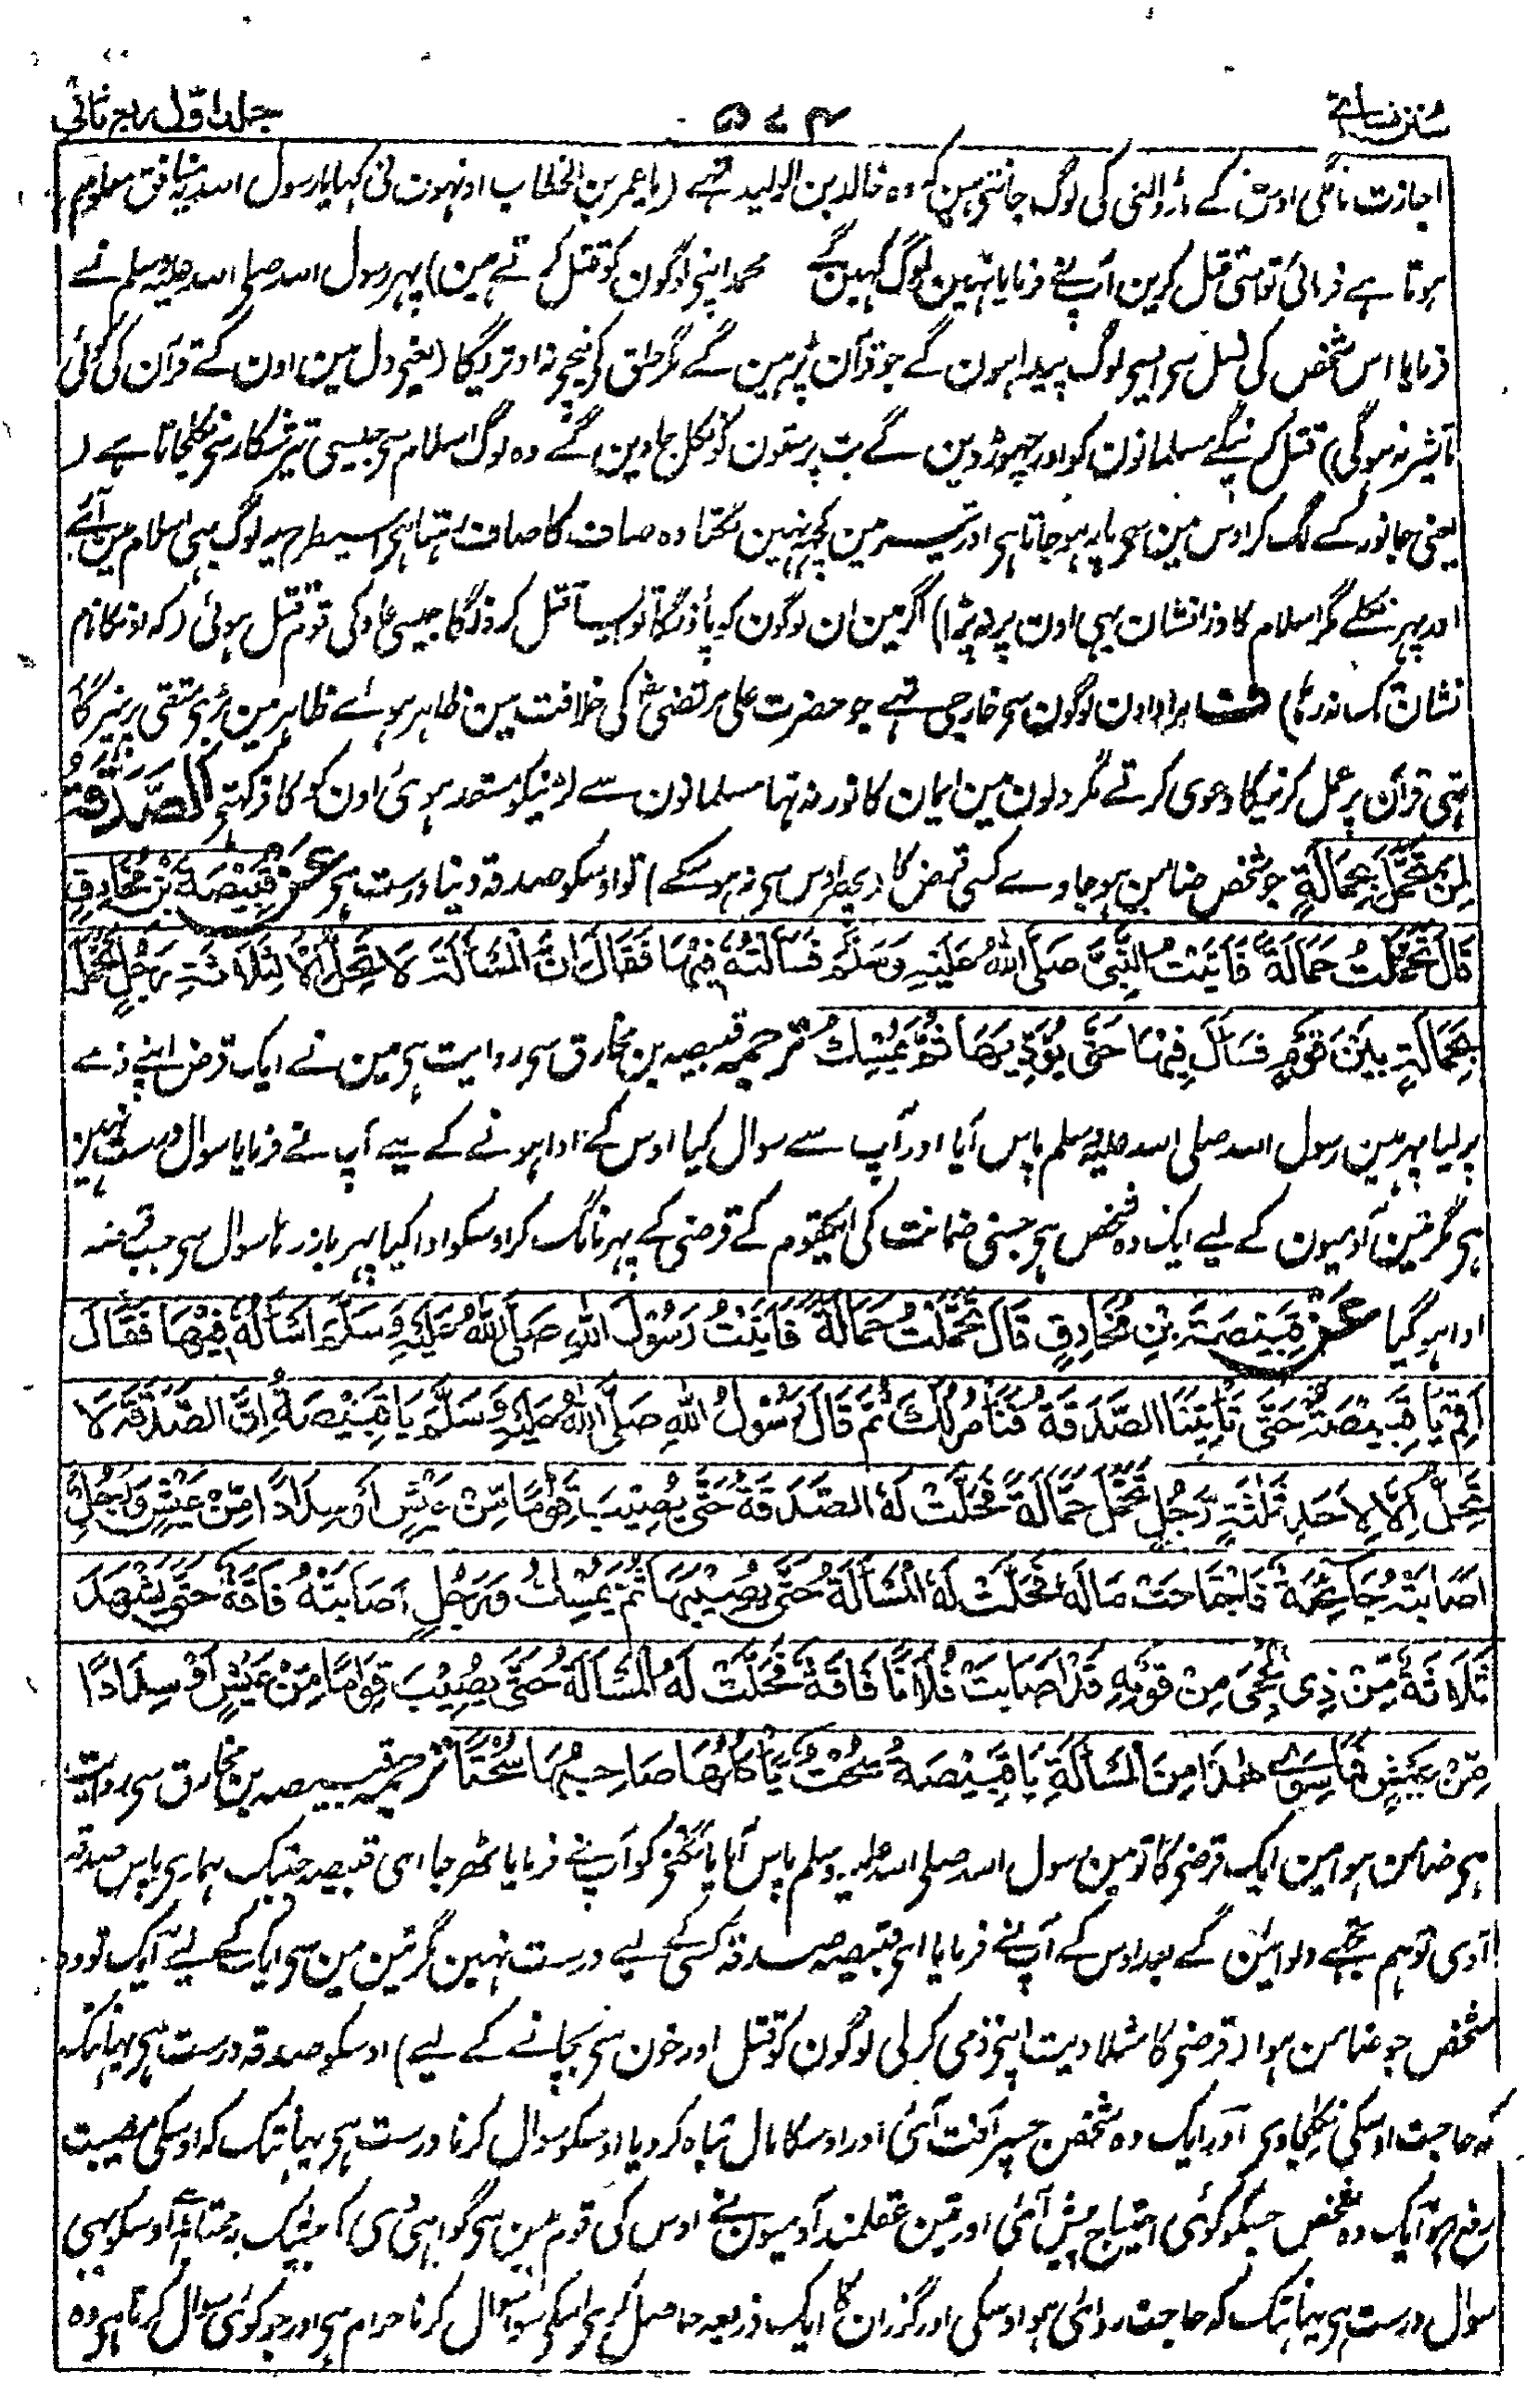 سنن نسائے
۵۷۴
جلد اول ربع ثانی
اجازت مانگی اوس کے مار ڈالنی کی لوگ جانتی ہین کہ وہ خالد بن الولید تہے (یا عمر بن الخطاب اونہون نی کہا یا رسول اللہ یہ منافق معلوم
ہوتا ہے فرمائی تو اسی قتل کرین آپنے فرمایا نہین لوگ کہین گے محمد اپنی لوگون کو قتل کرتے ہین) پہر رسول اللہ صلی اللہ علیہ وسلم نے
فرمایا اس شخص کی نسل سی ایسی لوگ پیدا ہون گے جو قرآن پڑہین گے مگر حلق کی نیچی نہ اوتریگا (یعنی دل مین اون کے قرآن کی کوئی
تاثیر نہ ہو گی) قتل کرینگے مسلمانون کو اور چہوڑ دین گے بت پرستون کو نکل جاوین گے وہ لوگ اسلام سی جیسی تیر شکار سی نکلجاتا ہے (
یعنی جانور کے لگ کر اوس مین سی پار ہو جاتا ہی اور تیر مین کچہہ نہین لگتا وہ صاف کا صاف رہتا ہی اسیطرح یہ لوگ بہی اسلام مین آئے
اور پہر نکلے مگر اسلام کا ذرا نشان بہی اون پر نہ پڑا) اگر مین ان لوگون کو پاؤنگا تو ایسا قتل کرونگا جیسی عاد کی قوم قتل ہوئی (کہ اونکا نام
نشان تک نہ رہا) ف مراد اون لوگون سی خارجی تہے جو حضرت علی مرتضی رض کی خلافت مین ظاہر ہوئے ظاہر مین بڑی متقی پرہیزگار
تہی قرآن پر عمل کرنیکا دعوی کرتے مگر دلون مین ایمان کا نور نہ تہا مسلمانون سے لڑنیکو مستعد ہوئی اون کو کافر کہتی الصَّدَقَةُ
لِمَنْ تَحَمَّلَ بِحَمَالَةٍ جو شخص ضامن ہو جاوے کسی قرض کا تو اوسکو صدقہ دینا درست ہی عَنْ قَبِيْصَةَ بْنِ مُخَارِقٍ
قَالَ تَحَمَّلْتُ حَمَالَةً فَاَتَيْتُ النَّبِيَّ صَلَّى اللهُ عَلَيْهِ وَسَلَّمَ فَسَاَلْتُهُ فِيْهَا فَقَالَ اِنَّ الْمَسْأَلَةَ لَا تَحِلُّ اِلَّا لِثَلَاثَةٍ رَجُلٍ تَحَمَّلَ
بِحَمَالَةٍ بَيْنَ قَوْمٍ فَسَأَلَ فِيْهَا حَتّٰى يُؤَدِّيَهَا ثُمَّ يُمْسِكُ ترجمہ قبیصہ بن مخارق سی روایت ہی مین نے ایک قرض اپنے ذمے
پر لیا پہر مین رسول اللہ صلی اللہ علیہ وسلم پاس آیا اور آپ سے سوال کیا اوس کے ادا ہونے کے لیے آپ نے فرمایا سوال درست نہین
ہی مگر تین آدمیون کے لیے ایک وہ شخص ہی جسنی ضمانت کی ایکقوم کے قرضی کے پہر مانگ کر اوسکو ادا کیا پہر باز رہا سوال سی جب قرضہ
ادا ہو گیا عَنْ قَبِيْصَةَ بْنِ مُخَارِقٍ قَالَ تَحَمَّلْتُ حَمَالَةً فَاَتَيْتُ رَسُوْلَ اللهِ صَلَّى اللهُ عَلَيْهِ وَسَلَّمَ اَسْاَلُهُ فِيْهَا فَقَالَ
اَقِمْ يَا قَبِيْصَةُ حَتّٰى تَأْتِيَنَا الصَّدَقَةُ فَنَأْمُرَ لَكَ ثُمَّ قَالَ رَسُوْلُ اللهِ صَلَّى اللهُ عَلَيْهِ وَسَلَّمَ يَا قَبِيْصَةُ اِنَّ الصَّدَقَةَ لَا
تَحِلُّ اِلَّا لِاَحَدِ ثَلٰثَةٍ رَجُلٍ تَحَمَّلَ حَمَالَةً فَحَلَّتْ لَهُ الصَّدَقَةُ حَتّٰى يُصِيْبَ قِوَامًا مِّنْ عَيْشٍ اَوْ سِدَادًا مِّنْ عَيْشٍ وَرَجُلٍ
اَصَابَتْهُ جَائِحَةٌ فَاجْتَاحَتْ مَالَهُ فَحَلَّتْ لَهُ الْمَسْأَلَةُ حَتّٰى يُصِيْبَهَا ثُمَّ يُمْسِكُ وَرَجُلٍ اَصَابَتْهُ فَاقَةٌ حَتّٰى يَشْهَدَ
ثَلَاثَةٌ مِّنْ ذِي الْحِجٰى مِنْ قَوْمِهِ قَدْ اَصَابَتْ فُلَانًا فَاقَةٌ فَحَلَّتْ لَهُ الْمَسْأَلَةُ حَتّٰى يُصِيْبَ قِوَامًا مِّنْ عَيْشٍ اَوْ سِدَادًا
مِّنْ عَيْشٍ فَمَا سِوٰى هٰذَا مِنَ الْمَسْأَلَةِ يَا قَبِيْصَةُ سُحْتٌ يَّأْكُلُهَا صَاحِبُهَا سُحْتًا ترجمہ قبیصہ بن مخارق سی روایت
ہی ضامن ہوا مین ایک قرضی کا تو مین رسول اللہ صلی اللہ علیہ وسلم پاس آیا مانگنی کو آپنے فرمایا ٹہر جا اسی قبیصہ جبتک ہماری پاس صدقہ
آوی تو ہم تجہے دلوائین گے بعد اوس کے آپنے فرمایا ای قبیصہ صدقہ کسی کے لیے درست نہین مگر تین مین سی ایک کے لیے ایک تو وہ
شخص جو ضامن ہوا (قرضی کا مثلا دیت اپنی ذمی کر لی لوگون کو قتل اور خون سی بچانے کے لیے) اوسکو صدقہ درست ہی یہانتک
کہ حاجت اوسکی نکلجاوی اور ایک وہ شخص جسپر آفت آئی اور اوسکا مال تباہ کر دیا اوسکو سوال کرنا درست ہی یہانتک کہ اوسکی مصیبت
رفع ہو ایک وہ شخص جسکو کوئی احتیاج پیش آئی اور تین عقلمند آدمیون نے اوس کی قوم مین سی گواہی دی کہ بیشک یہ محتاج ہے اوسکو بہی
سوال درست ہی یہانتک کہ حاجت روائی ہو اوسکی اور گزران کا ایک ذریعہ حاصل کری اسکی سوا سوال کرنا حرام ہی اور جو کوئی سوال کرتا ہی وہ